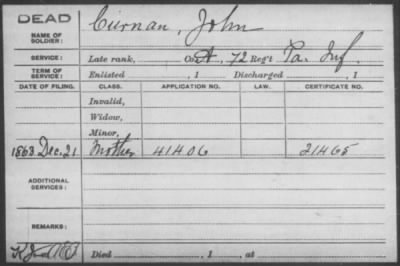 DEAD
NAME OF SOLDIER: Curnan, John
SERVICE: Late rank, Co. A, 72 Reg't Pa. Inf.
TERM OF SERVICE: Enlisted , 1 Discharged , 1
DATE OF FILING. CLASS. APPLICATION NO. LAW. CERTIFICATE NO.
Invalid,
Widow,
Minor,
1863 Dec. 21 Mother 41406 21465
ADDITIONAL SERVICES:
REMARKS:
Died , 1 , at